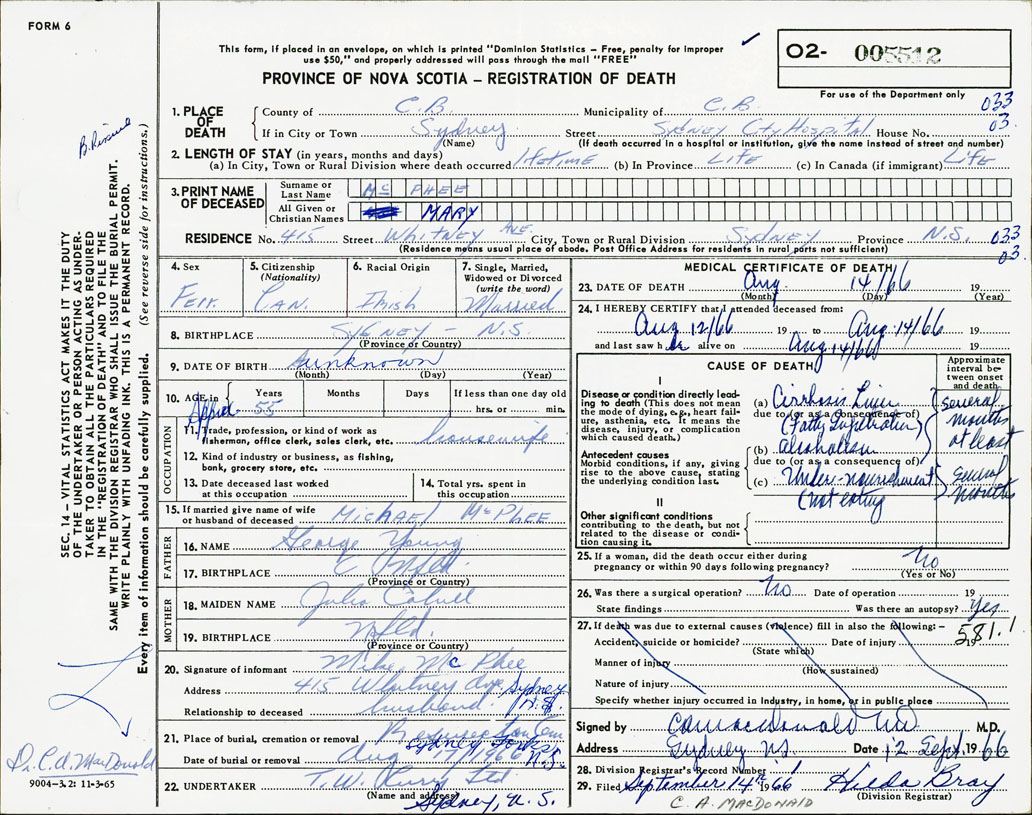 FORM 6
This form, if placed in an envelope, on which is printed "Dominion Statistics – Free, penalty for improper
use $50," and properly addressed will pass through the mail "FREE"
PROVINCE OF NOVA SCOTIA – REGISTRATION OF DEATH
02- 005512
For use of the Department only
1. PLACE OF DEATH County of C.B. Municipality of C.B. 033
If in City or Town Sydney Street Sydney Cty Hospital House No. 03.
(Name) (If death occurred in a hospital or institution, give the name instead of street and number)
2. LENGTH OF STAY (in years, months and days)
(a) In City, Town or Rural Division where death occurred lifetime (b) In Province Life (c) In Canada (if immigrant) Life
3. PRINT NAME OF DECEASED Surname or Last Name Mc PHEE
All Given or Christian Names MARY
RESIDENCE No. 415 Street Whitney Ave. City, Town or Rural Division Sydney Province N.S. 033
(Residence means usual place of abode. Post Office Address for residents in rural parts not sufficient) 03.
4. Sex Fem. 5. Citizenship (Nationality) Can. 6. Racial Origin Irish 7. Single, Married, Widowed or Divorced (write the word) Married
8. BIRTHPLACE Sydney – N.S.
(Province or Country)
9. DATE OF BIRTH unknown
(Month) (Day) (Year)
10. AGE in Years Months Days If less than one day old
55 hrs. or min.
OCCUPATION
11. Trade, profession, or kind of work as fisherman, office clerk, sales clerk, etc. housewife
12. Kind of industry or business, as fishing, bank, grocery store, etc.
13. Date deceased last worked at this occupation 14. Total yrs. spent in this occupation
15. If married give name of wife or husband of deceased Michael McPhee
FATHER
16. NAME George Young
17. BIRTHPLACE Nfld.
(Province or Country)
MOTHER
18. MAIDEN NAME Julia
19. BIRTHPLACE Nfld.
(Province or Country)
20. Signature of informant Mike McPhee
Address 415 Whitney Ave, Sydney N.S.
Relationship to deceased husband
21. Place of burial, cremation or removal Sydney Forks N.S.
Date of burial or removal Aug 17/1966
22. UNDERTAKER T.W. Curry Ltd
(Name and address) Sydney, N.S.
MEDICAL CERTIFICATE OF DEATH
23. DATE OF DEATH Aug. 14/66 19
(Month) (Day) (Year)
24. I HEREBY CERTIFY that I attended deceased from:
Aug 12/66 19 to Aug. 14/66 19
and last saw h alive on Aug 14/66 19
CAUSE OF DEATH
Approximate interval between onset and death
I
Disease or condition directly leading to death (This does not mean the mode of dying, e.g., heart failure, asthenia, etc. It means the disease, injury, or complication which caused death.)
(a) Cirrhosis Liver
due to (or as a consequence of)
(Fatty Infiltration)
several months at least
Antecedent causes
Morbid conditions, if any, giving rise to the above cause, stating the underlying condition last.
(b) alcoholism
due to (or as a consequence of)
(c) Under-nourishment
(not eating
several months
II
Other significant conditions
contributing to the death, but not related to the disease or condition causing it.
25. If a woman, did the death occur either during pregnancy or within 90 days following pregnancy? No
(Yes or No)
26. Was there a surgical operation? No Date of operation 19
State findings Was there an autopsy? Yes
27. If death was due to external causes (violence) fill in also the following:– 581.1
Accident, suicide or homicide? Date of injury 19
(State which)
Manner of injury
(How sustained)
Nature of injury
Specify whether injury occurred in Industry, in home, or in public place
Signed by C A MacDonald MD M.D.
Address Sydney NS. Date 12 Sept. 1966
28. Division Registrar's Record Number
29. Filed September 14th 1966 Hilda Bray
(Division Registrar)
C. A. MACDONALD
SEC. 14 – VITAL STATISTICS ACT MAKES IT THE DUTY
OF THE UNDERTAKER OR PERSON ACTING AS UNDER-
TAKER TO OBTAIN ALL THE PARTICULARS REQUIRED
IN THE "REGISTRATION OF DEATH" AND TO FILE THE
SAME WITH THE DIVISION REGISTRAR WHO SHALL ISSUE THE BURIAL PERMIT.
WRITE PLAINLY WITH UNFADING INK. THIS IS A PERMANENT RECORD.
Every item of information should be carefully supplied. (See reverse side for instructions.)
Dr. C.A. MacDonald
9004–3.2: 11-3-65